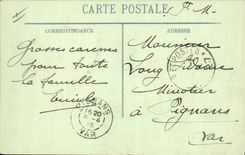 F. M.
CARTE POSTALE
CORRESPONDANCE
ADRESSE
Grosses caresses
pour toute
la famille
Emile
Monsieur
Long
Minotier
à Pignans
Var
PIGNANS
VAR